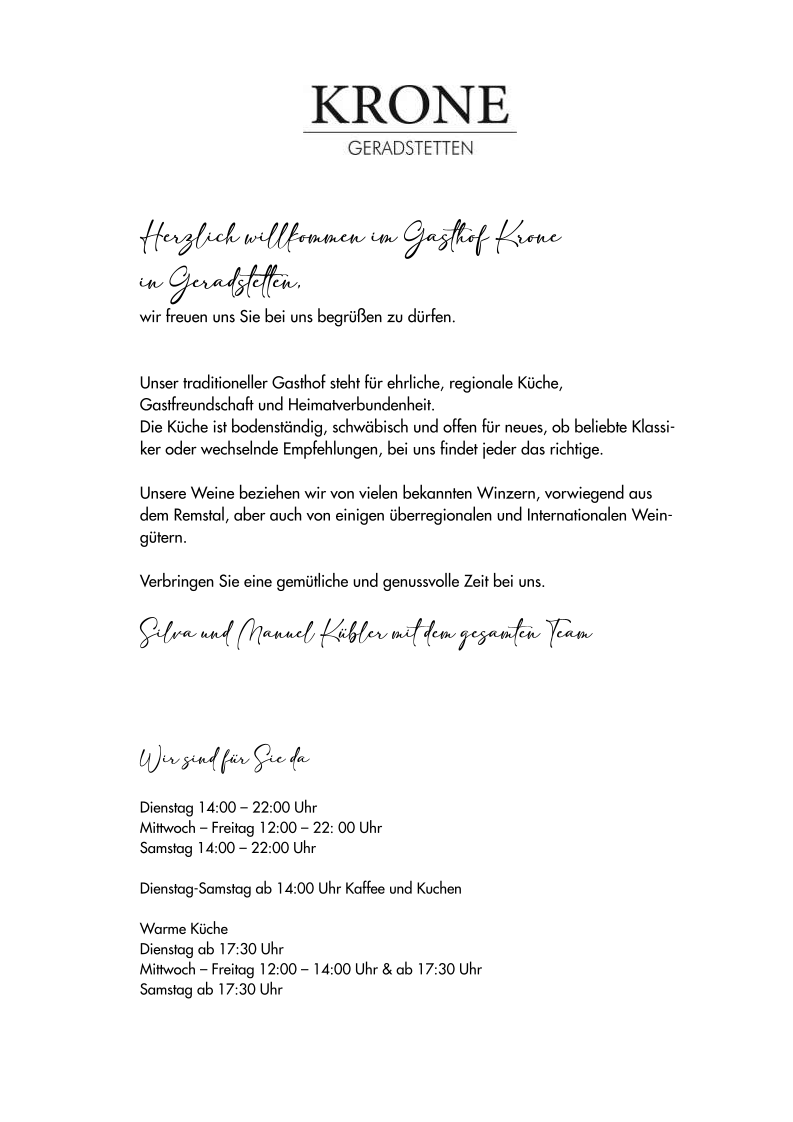 KRONE
GERADSTETTEN
Herzlich willkommen im Gasthof Krone
in Geradstetten,
wir freuen uns Sie bei uns begrüßen zu dürfen.
Unser traditioneller Gasthof steht für ehrliche, regionale Küche,
Gastfreundschaft und Heimatverbundenheit.
Die Küche ist bodenständig, schwäbisch und offen für neues, ob beliebte Klassi-
ker oder wechselnde Empfehlungen, bei uns findet jeder das richtige.
Unsere Weine beziehen wir von vielen bekannten Winzern, vorwiegend aus
dem Remstal, aber auch von einigen überregionalen und Internationalen Wein-
gütern.
Verbringen Sie eine gemütliche und genussvolle Zeit bei uns.
Silva und Manuel Kübler mit dem gesamten Team
Wir sind für Sie da
Dienstag 14:00 – 22:00 Uhr
Mittwoch – Freitag 12:00 – 22: 00 Uhr
Samstag 14:00 – 22:00 Uhr
Dienstag-Samstag ab 14:00 Uhr Kaffee und Kuchen
Warme Küche
Dienstag ab 17:30 Uhr
Mittwoch – Freitag 12:00 – 14:00 Uhr & ab 17:30 Uhr
Samstag ab 17:30 Uhr